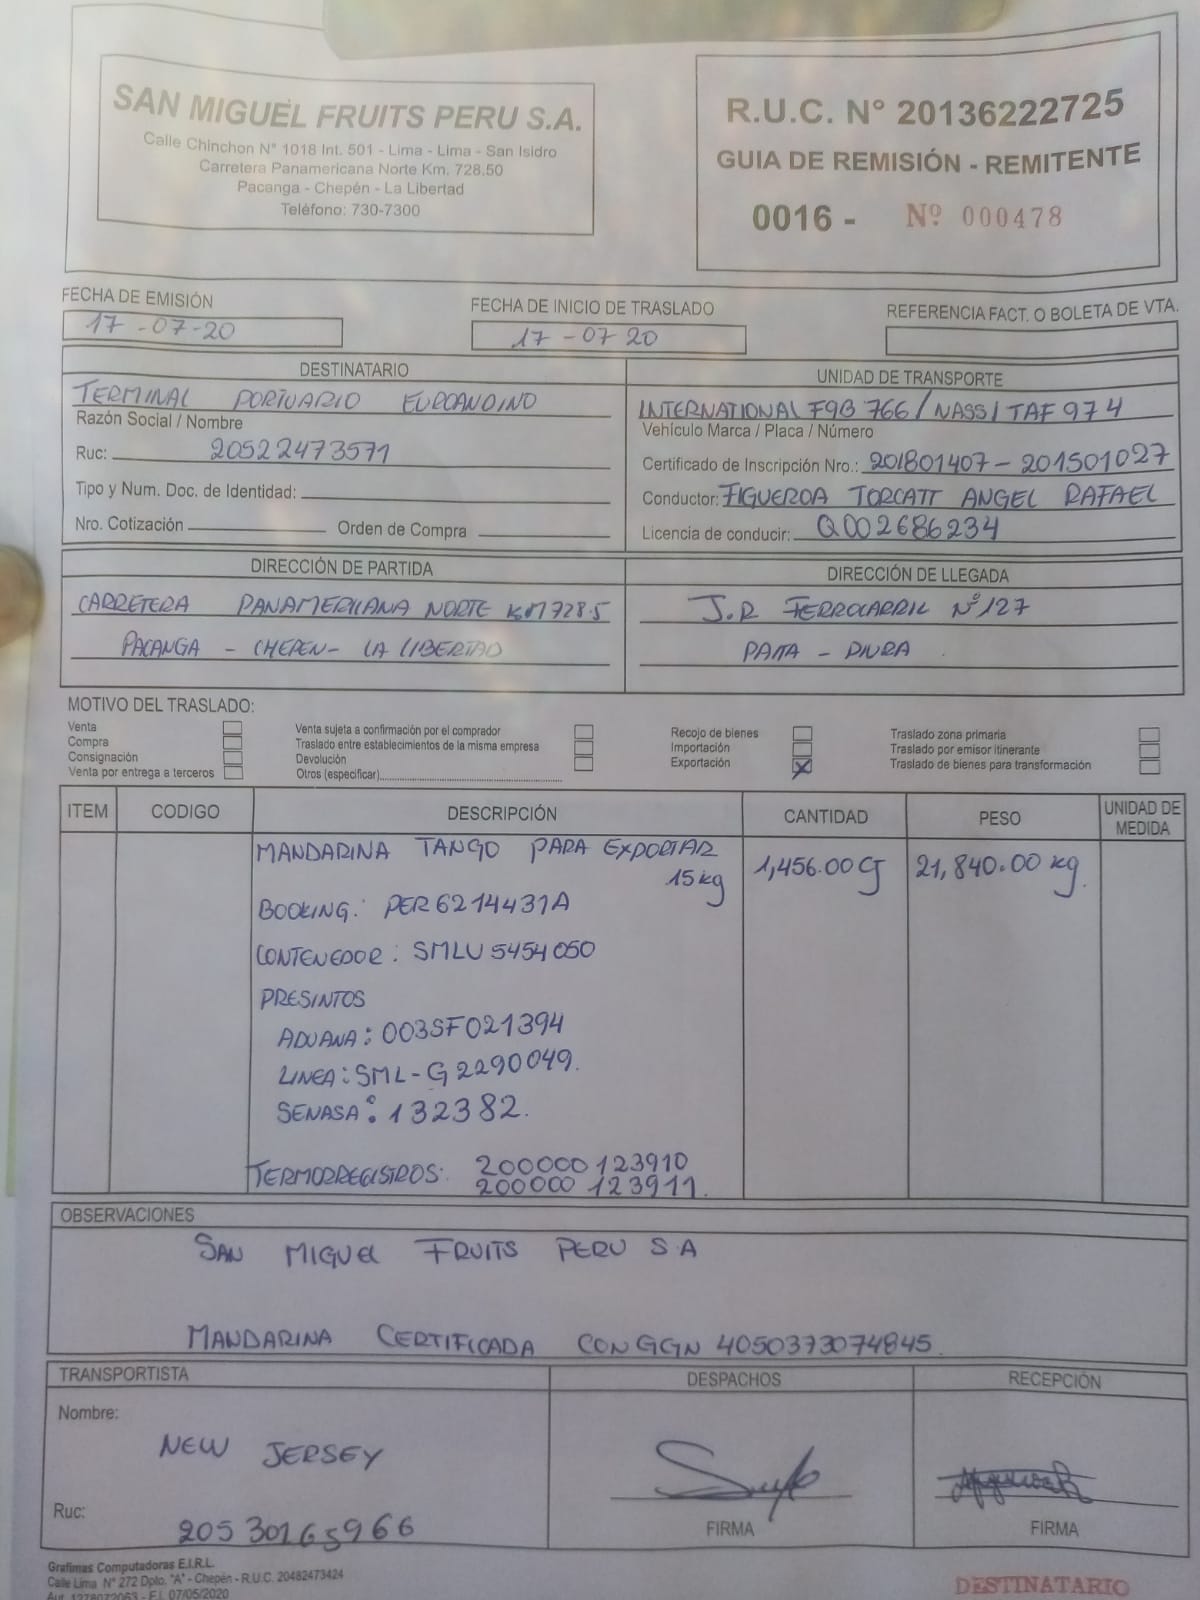 SAN MIGUEL FRUITS PERU S.A.
Calle Chinchon N° 1018 Int. 501 - Lima - Lima - San Isidro
Carretera Panamericana Norte Km. 728.50
Pacanga - Chepén - La Libertad
Teléfono: 730-7300
R.U.C. N° 20136222725
GUIA DE REMISIÓN - REMITENTE
0016 - Nº 000478
FECHA DE EMISIÓN
17-07-20
FECHA DE INICIO DE TRASLADO
17-07 20
REFERENCIA FACT. O BOLETA DE VTA.
DESTINATARIO
TERMINAL PORTUARIO EUROANDINO
Razón Social / Nombre
Ruc: 20522473571
Tipo y Num. Doc. de Identidad:
Nro. Cotización Orden de Compra
UNIDAD DE TRANSPORTE
INTERNATIONAL F9B 766 / NASSI TAF 974
Vehículo Marca / Placa / Número
Certificado de Inscripción Nro.: 201801407 - 201501027
Conductor: FIGUEROA TORCATT ANGEL RAFAEL
Licencia de conducir: Q002686234
DIRECCIÓN DE PARTIDA
CARRETERA PANAMERICANA NORTE KM 728.5
PACANGA - CHEPEN - LA LIBERTAD
DIRECCIÓN DE LLEGADA
J.R FERROCARRIL Nº 127
PAITA - PIURA
MOTIVO DEL TRASLADO:
Venta
Compra
Consignación
Venta por entrega a terceros
Venta sujeta a confirmación por el comprador
Traslado entre establecimientos de la misma empresa
Devolución
Otros (especificar)
Recojo de bienes
Importación
Exportación X
Traslado zona primaria
Traslado por emisor itinerante
Traslado de bienes para transformación
ITEM CODIGO DESCRIPCIÓN CANTIDAD PESO UNIDAD DE MEDIDA
MANDARINA TANGO PARA EXPORTAR
15 kg 1,456.00 CJ 21,840.00 kg.
BOOKING: PER6214431A
CONTENEDOR: SMLU 5454050
PRESINTOS
ADUANA: 003SF021394
LINEA: SML-G2290049.
SENASA: 132382.
TERMORREGISTROS: 200000 123910
200000 123911.
OBSERVACIONES
SAN MIGUEL FRUITS PERU S.A
MANDARINA CERTIFICADA CON GGN 4050373074845.
TRANSPORTISTA
Nombre:
NEW JERSEY
Ruc:
20530165966
DESPACHOS
FIRMA
RECEPCIÓN
FIRMA
Grafimas Computadoras E.I.R.L.
Calle Lima N° 272 Dpto. "A" - Chepén - R.U.C. 20482473424
Aut. 1278072063 - F.I. 07/05/2020
DESTINATARIO